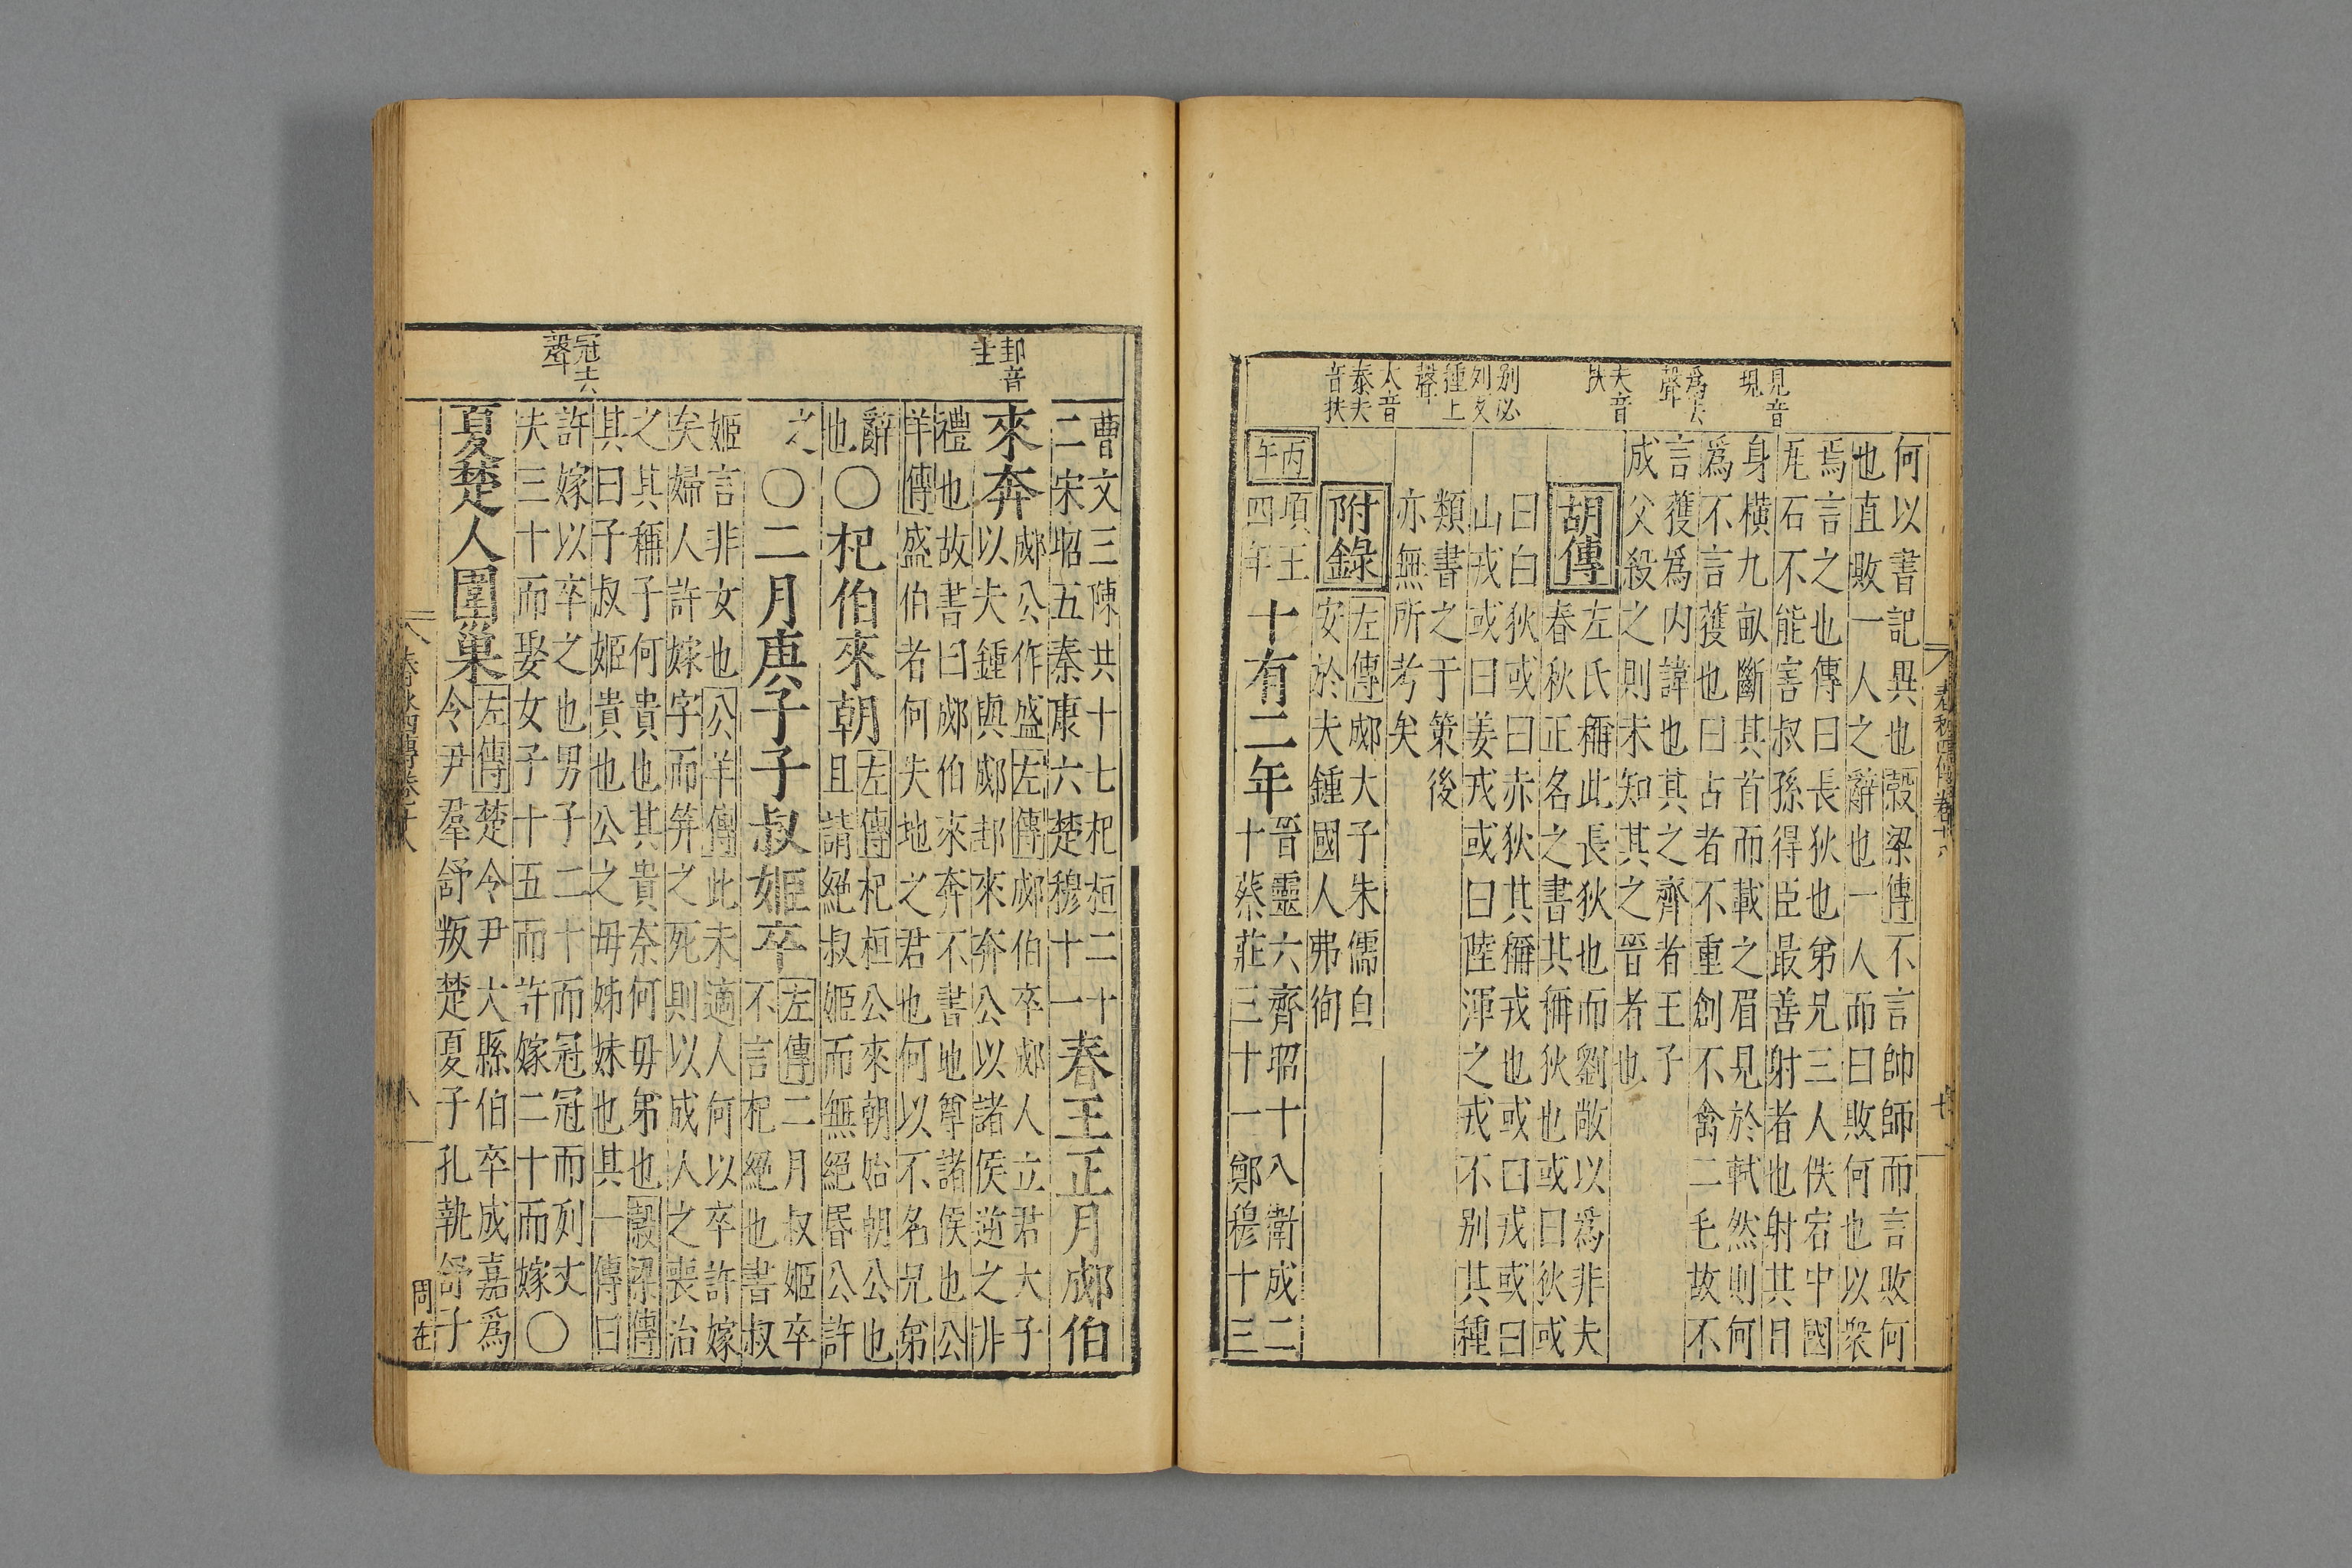 見音現
爲去聲
夫音扶
别必列反
種上聲
大音泰夫音扶
春秋四傳卷十八
何以書記異也穀梁傳不言帥師而言敗何
也直敗一人之辭也一人而曰敗何也以衆
焉言之也傳曰長狄也弟兄三人佚宕中國
瓦石不能害叔孫得臣最善射者也射其目
身橫九畝斷其首而載之眉見於軾然則何
爲不言獲也曰古者不重創不禽二毛故不
言獲爲内諱也其之齊者王子
成父殺之則未知其之晉者也
胡傳
左氏稱此長狄也而劉敞以爲非夫
春秋正名之書其稱狄也或曰狄或
曰白狄或曰赤狄其稱戎也或曰戎或曰
山戎或曰姜戎或曰陸渾之戎不别其種
類書之于策後
亦無所考矣
附錄
左傳郕大子朱儒自
安於夫鍾國人弗徇
丙午
項王四年
十有二年
晉靈六齊昭十八衞成二
十蔡莊三十一鄭穆十三
邽音圭
冠去聲
曹文三陳共十七杞桓二十
二宋昭五秦康六楚穆十一
春王正月郕伯
來奔
郕公作盛左傳郕伯卒郕人立君大子
以夫鍾與郕邽來奔公以諸侯逆之非
禮也故書曰郕伯來奔不書地尊諸侯也公
羊傳盛伯者何失地之君也何以不名兄弟
辭也
○杞伯來朝
左傳杞桓公來朝始朝公也
且請絶叔姬而無絶昏公許
之
○二月庚子子叔姬卒
左傳二月叔姬卒
不言杞絶也書叔
姬言非女也公羊傳此未適人何以卒許嫁
矣婦人許嫁字而笄之死則以成人之喪治
之其稱子何貴也其貴奈何毋弟也穀梁傳
其曰子叔姬貴也公之毋姊妹也其一傳曰
許嫁以卒之也男子二十而冠冠而列丈
夫三十而娶女子十五而許嫁二十而嫁○
夏楚人圍巢
左傳楚令尹大縣伯卒成嘉爲
令尹羣舒叛楚夏子孔執舒子
春秋四傳卷十八
周在